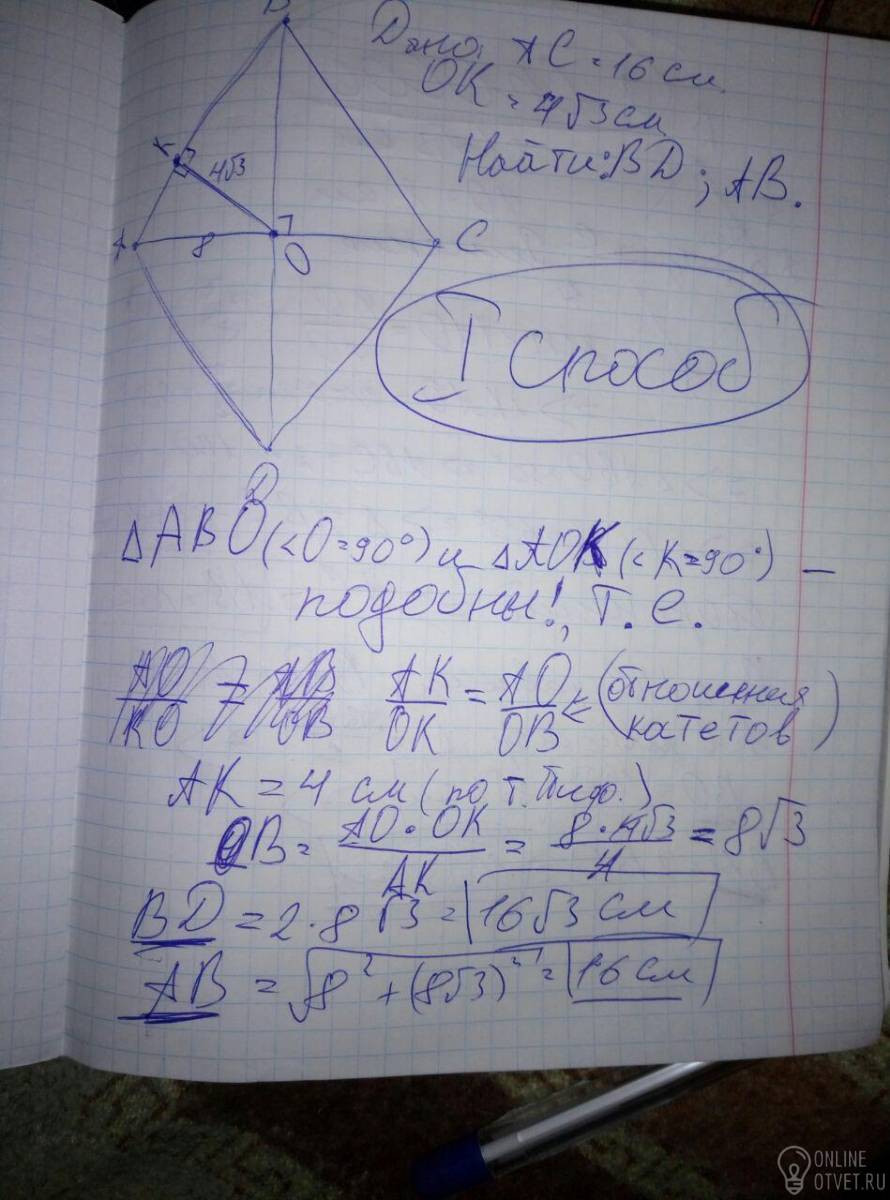 B
Дано: AC = 16 см.
OK = 4√3 см
Найти: BD ; AB.
K
4√3
A
8
O
C
I способ
D
△ABO (<O=90°) и △AOK (<K=90°) –
подобны!, т.е.
AO/KO = AB/OB AK/OK = AO/OB ⇐ (отношения катетов)
AK = 4 см (по т. Пифа.)
OB = AO·OK/AK = 8·4√3/4 = 8√3
BD = 2·8√3 = 16√3 см
AB = √8²+(8√3)² = 16 см
ONLINE
OTVET.RU